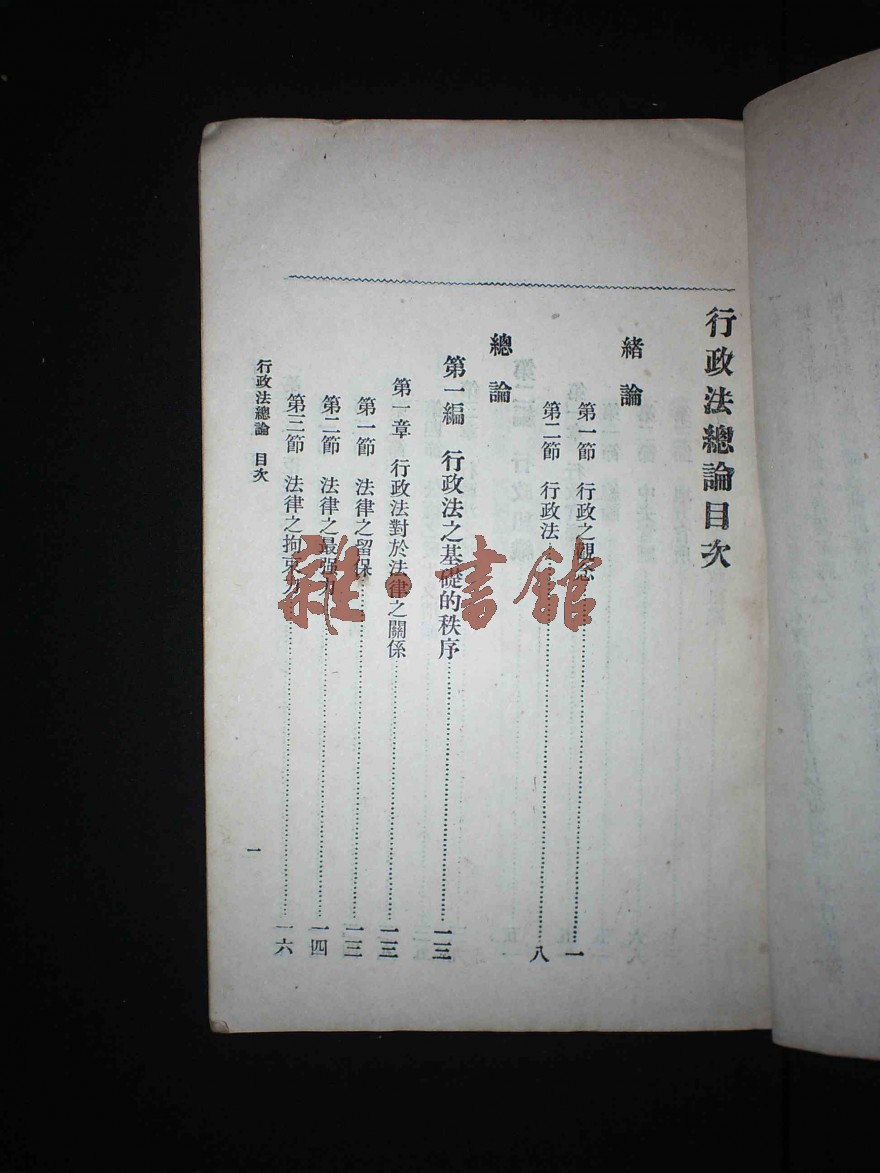 行政法總論目次
緒論
第一節 行政之觀念 一
第二節 行政法 八
總論
第一編 行政法之基礎的秩序 一三
第一章 行政法對於法律之關係 一三
第一節 法律之留保 一三
第二節 法律之最强力 一四
第三節 法律之拘束力 一六
行政法總論 目次
一
雜·書館